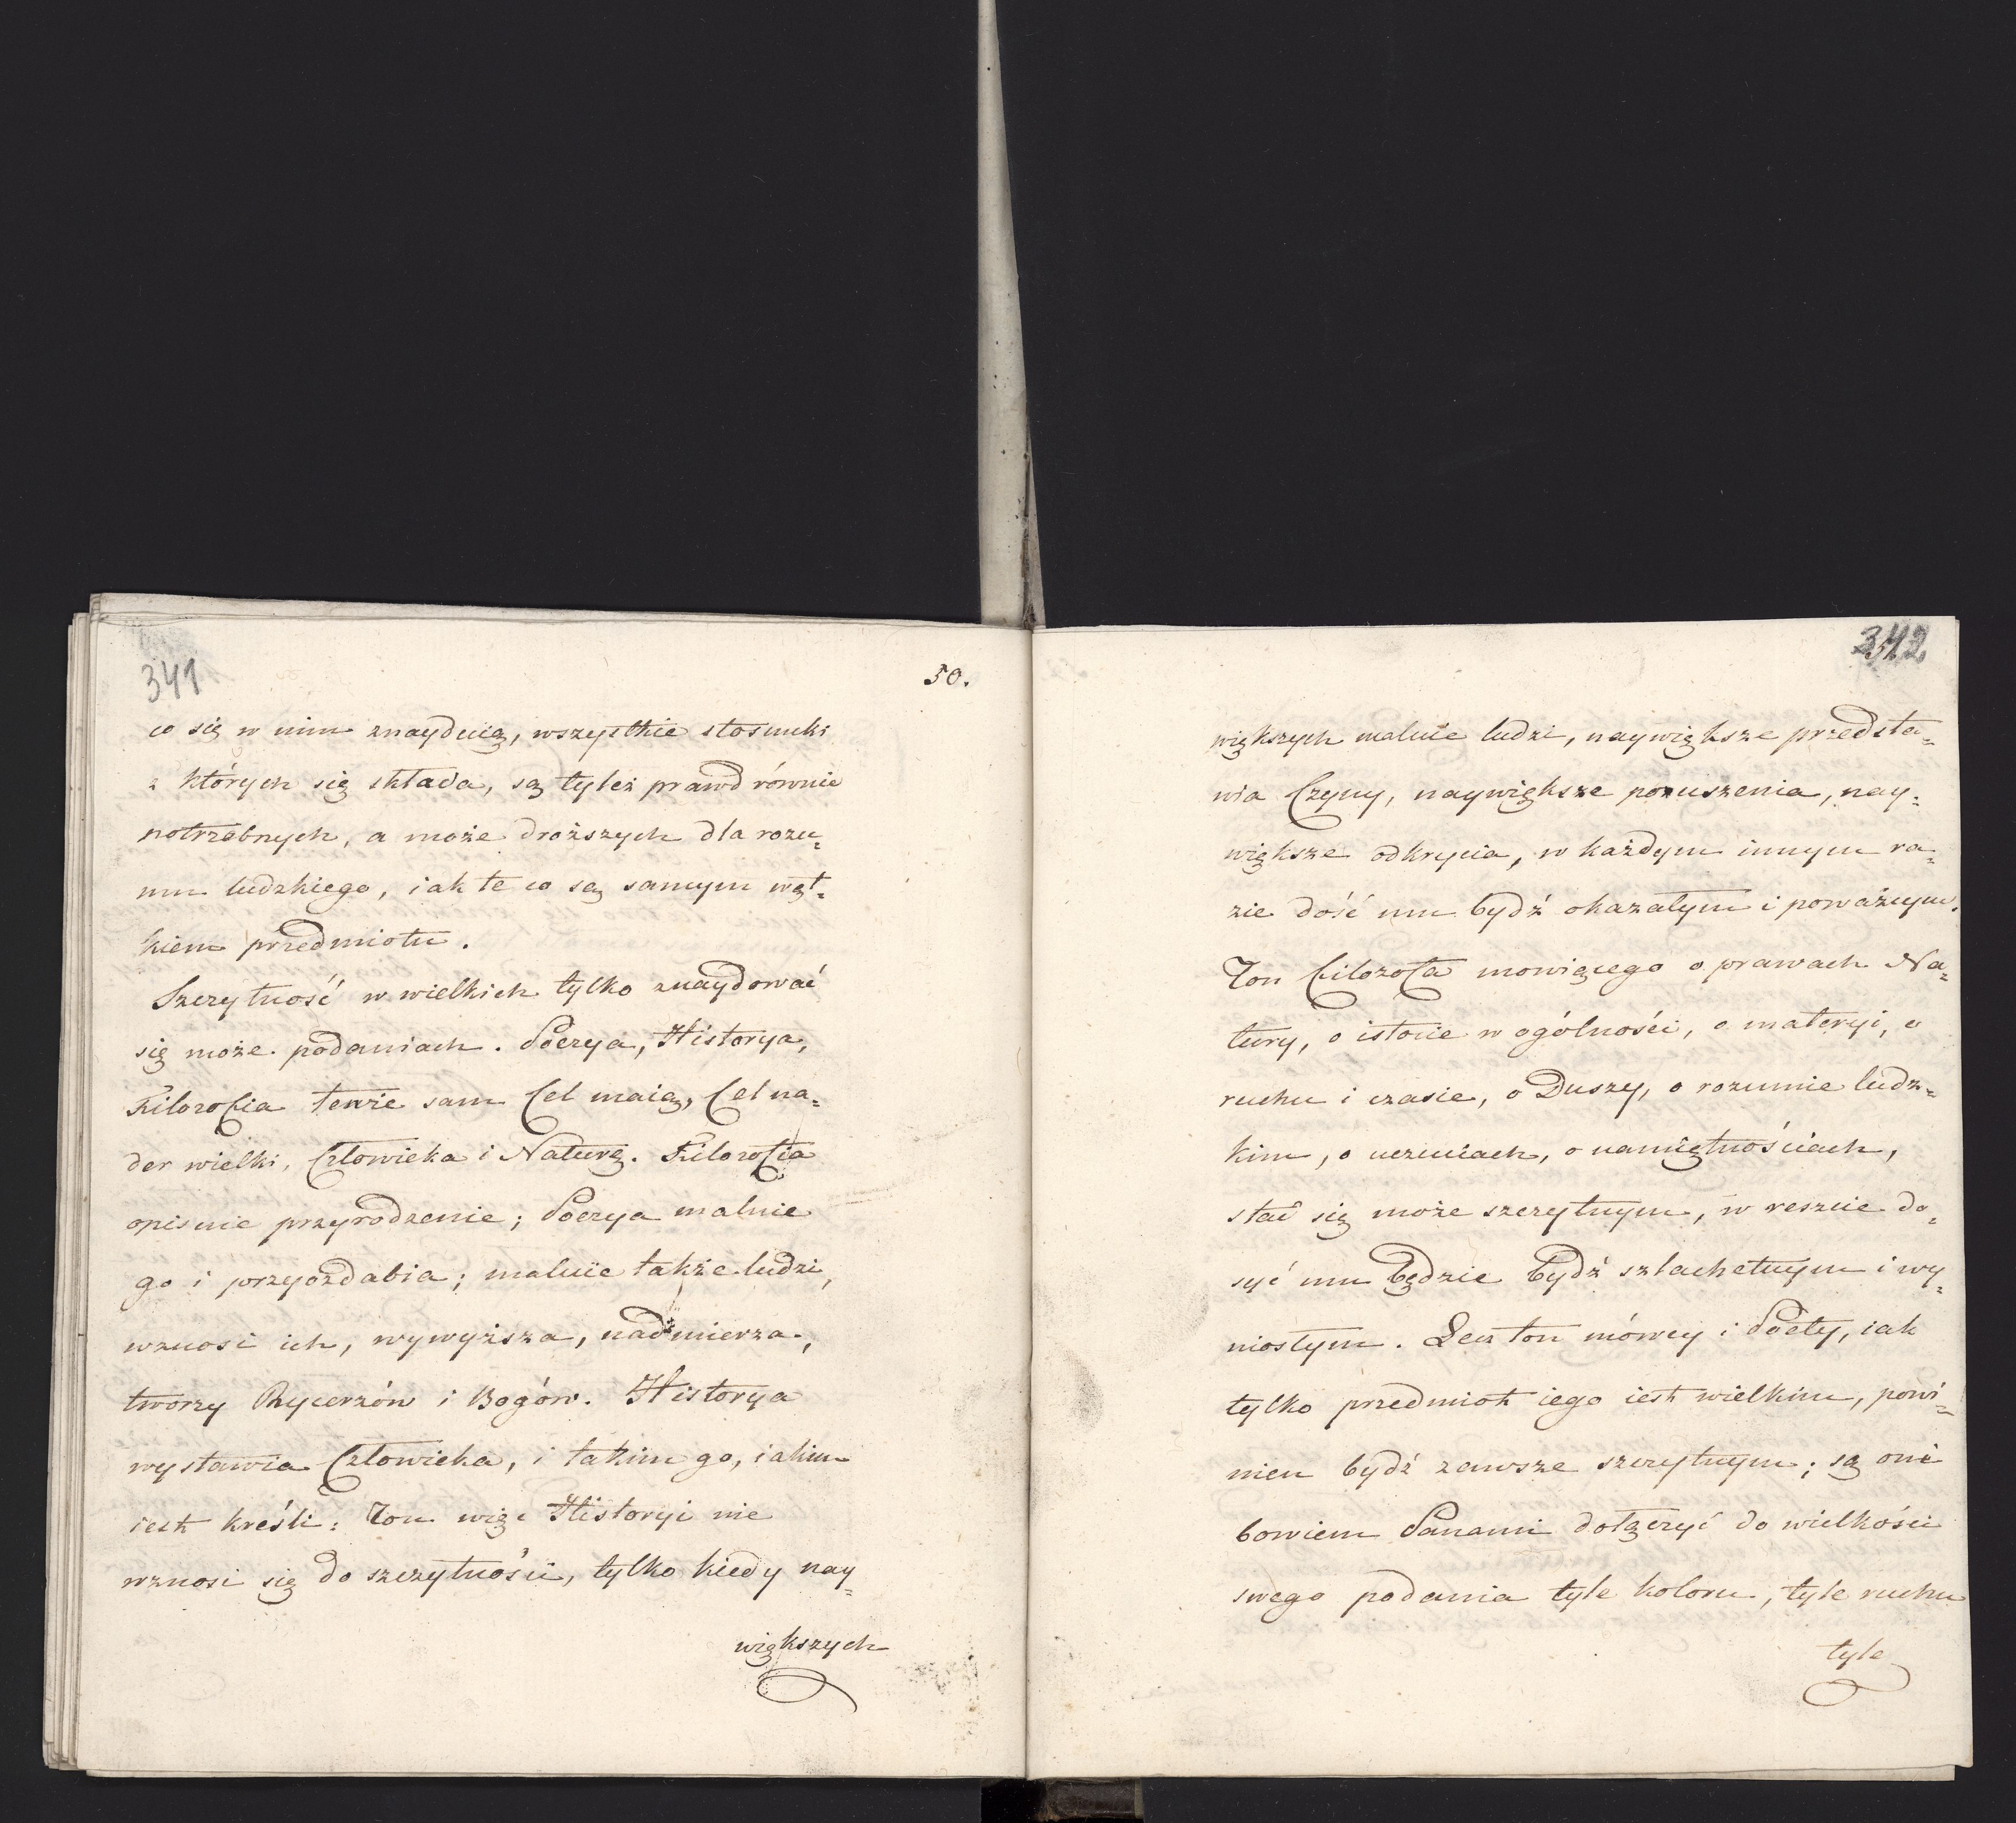 341
50.
co się w nim znayduią, wszystkie stosunki
z których się składa, są tyleż prawd równie
potrzebnych, a może droższych dla rozu=
mu ludzkiego, iak te co są samym wąt=
kiem przedmiotu.
Szczytność w wielkich tylko znaydować
się może podaniach. Poezya, Historya,
Filozofia tenże sam Cel maią, Cel na=
der wielki, Człowieka i Naturę. Filozofia
opisuie przyrodzenie; Poezya maluie
go i przyozdabia; maluie także ludzi,
wznosi ich, wywyższa, nadmierza,
tworzy Rycerzów i Bogów. Historya
wystawia Człowieka, i takim go, iakim
iest kreśli: Ton więc Historyi nie
wznosi się do szczytności, tylko kiedy nay=
większych
342
większych maluie ludzi, naywiększe przedsta=
wia Czyny, naywiększe poruszenia, nay=
większe odkrycia, w każdym innym ra=
zie dość mu bydź okazałym i poważnym.
Ton filozofa mowiącego o prawach Na=
tury, o istocie w ogólności, o materyi, o
ruchu i czasie, o Duszy, o rozumie ludz=
kim, o uczuciach, o namiętnościach,
stać się może szczytnym, w reszcie do=
syć mu będzie bydź szlachetnym i wy=
niosłym. Lecz ton mówcy i Poety, iak
tylko przedmiot iego iest wielkim, powi=
nien bydź zawsze szczytnym; są oni
bowiem Panami dołączyć do wielkości
swego podania tyle koloru, tyle ruchu
tyle